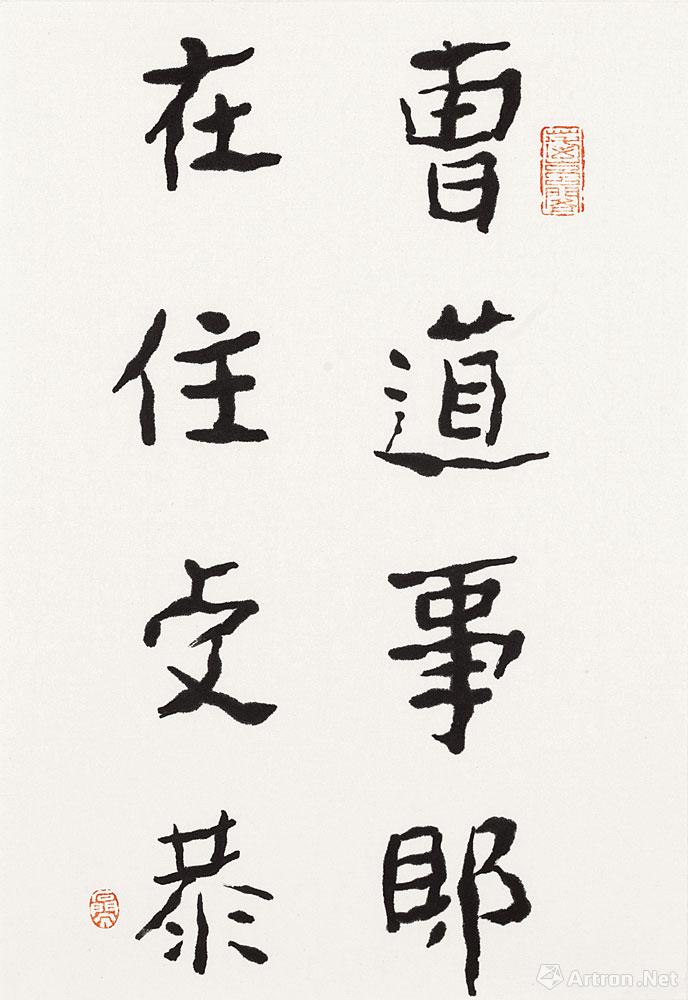 曹道事耶
在住虔恭
Artron.Net